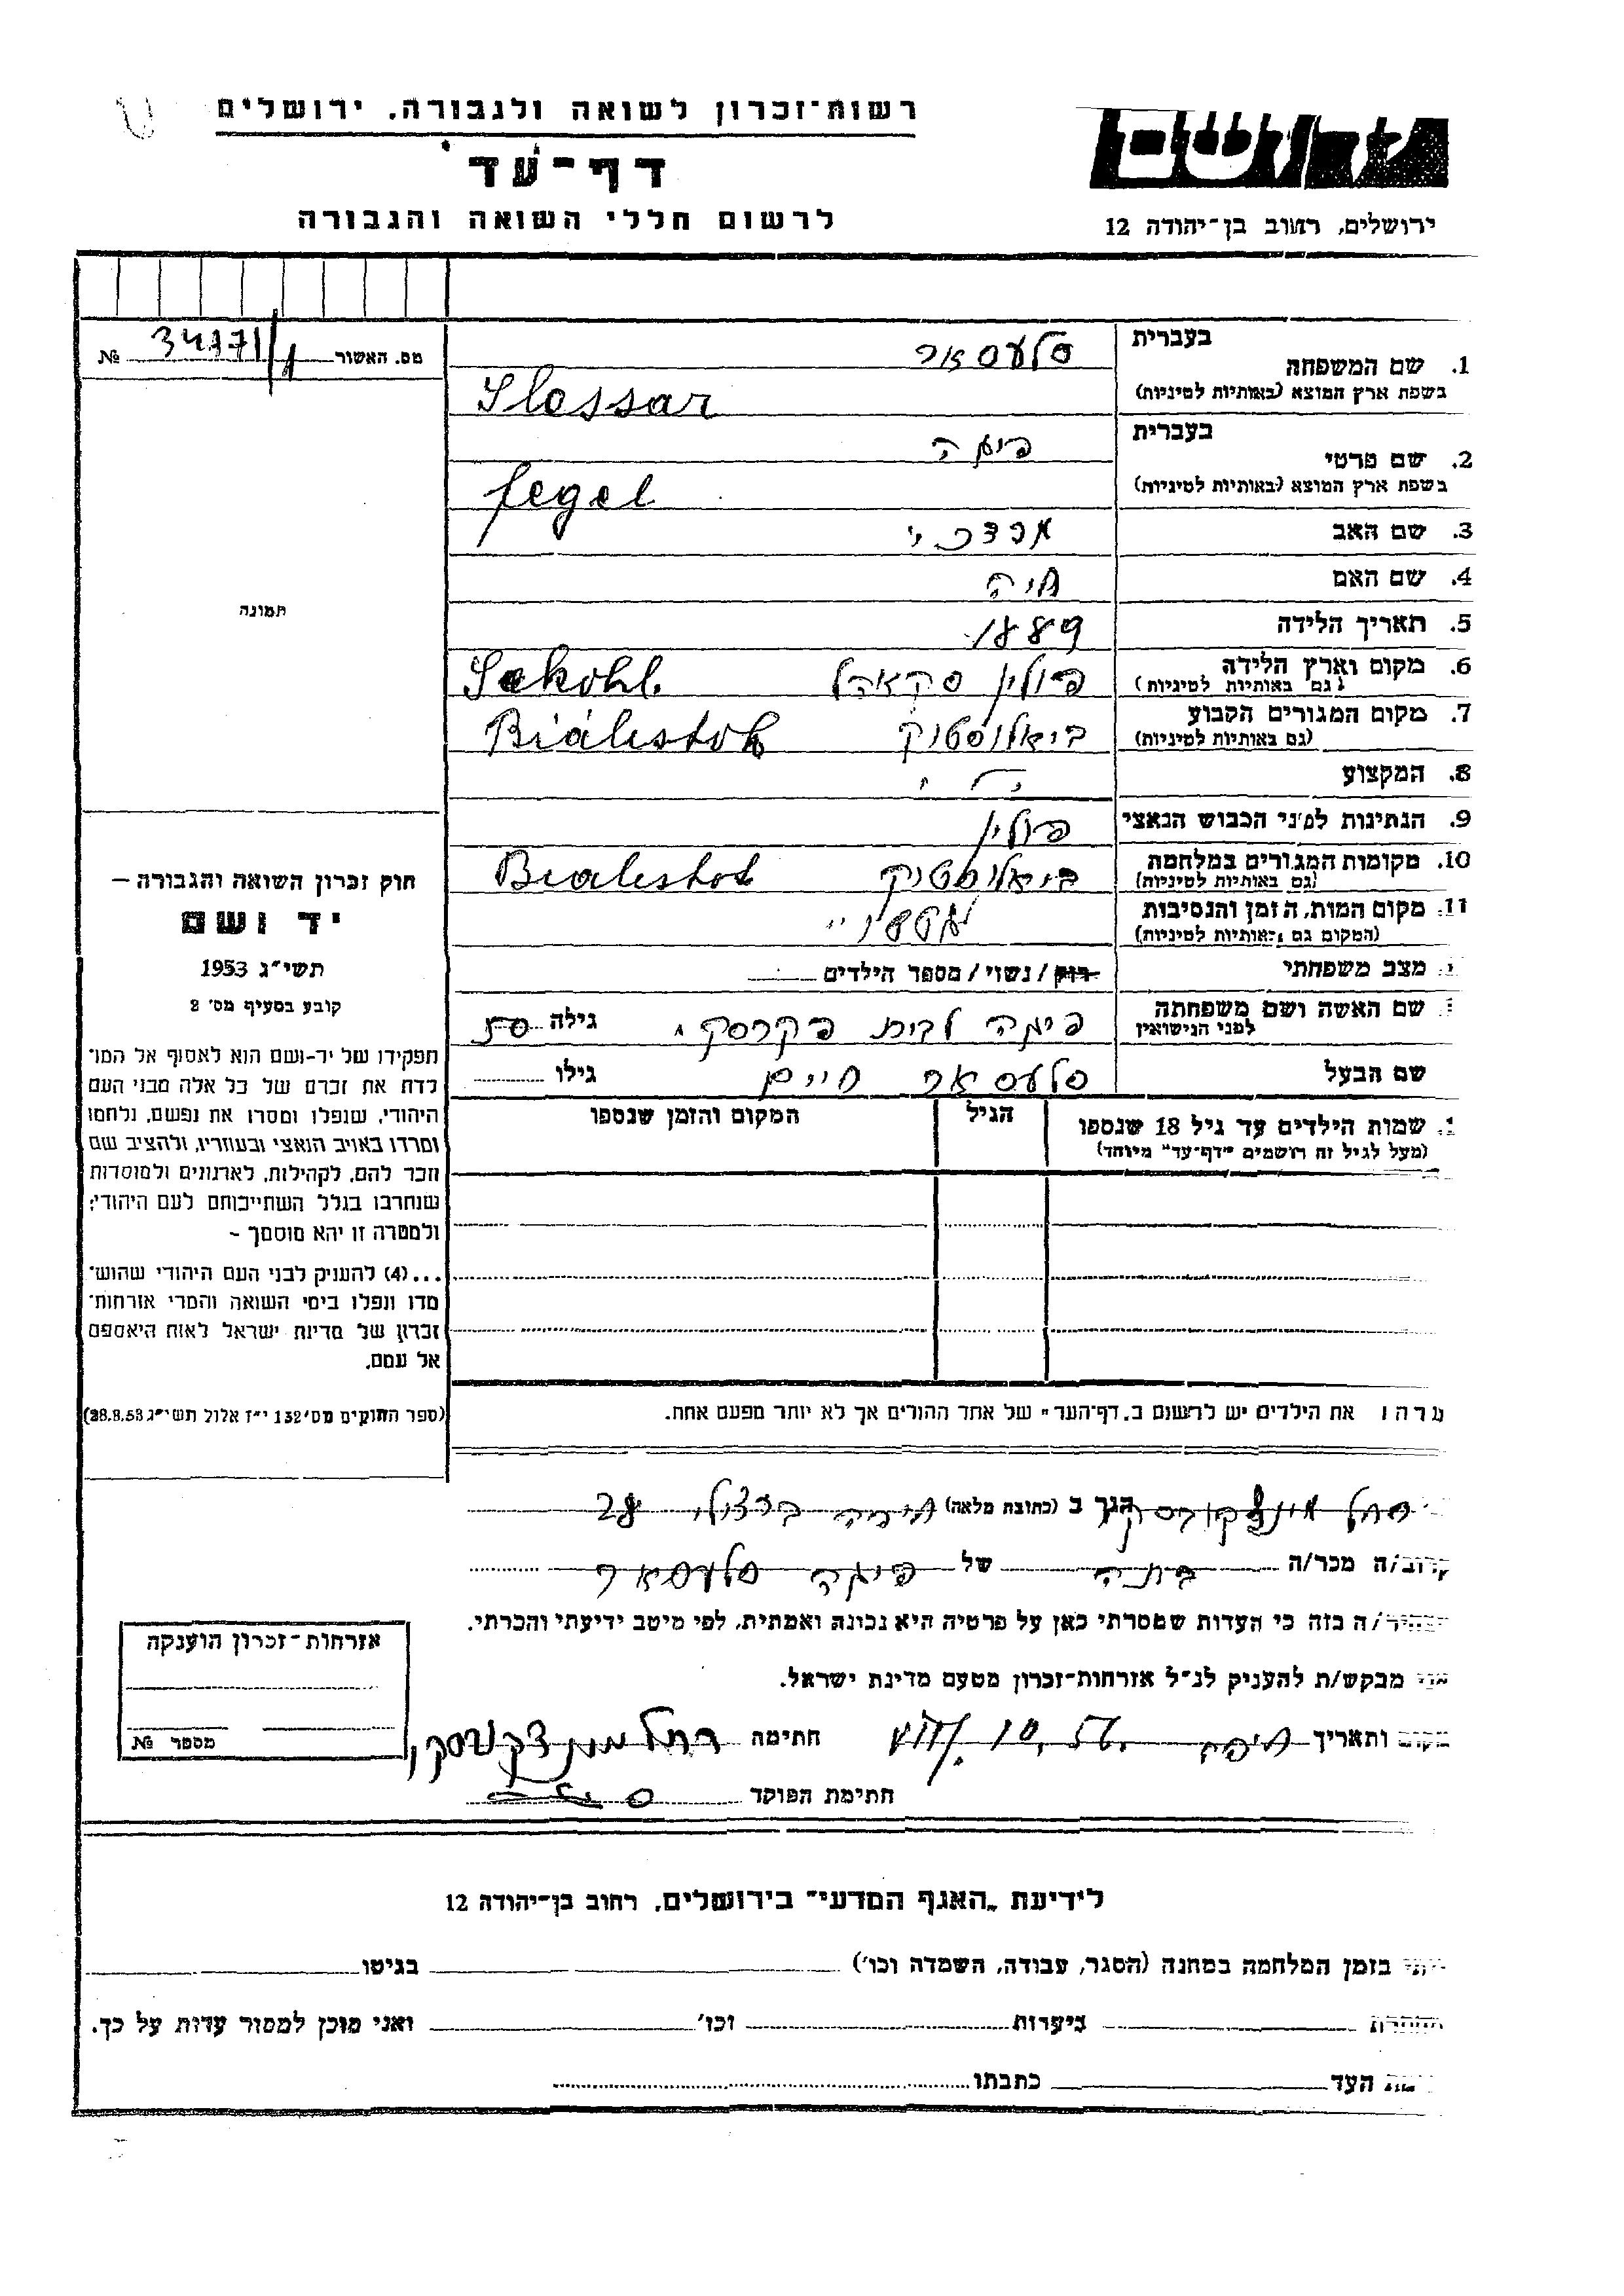 רשות־זכרון לשואה ולגבורה, ירושלים
דף־עד
לרשום חללי השואה והגבורה
יד ושם
ירושלים, רחוב בן־יהודה 12
מס. האשור 34771/1 №
1. שם המשפחה בעברית סלעסאר
בשפת ארץ המוצא (באותיות לטיניות) Slossar
2. שם פרטי בעברית פיגה
בשפת ארץ המוצא (באותיות לטיניות) fegel
3. שם האב מרדכי
4. שם האם חיה
5. תאריך הלידה 1889
6. מקום וארץ הלידה (גם באותיות לטיניות) פולין
7. מקום המגורים הקבוע (גם באותיות לטיניות) ביאליסטוק Bialistok
8. המקצוע
9. הנתינות לפני הכבוש הנאצי פולין
10. מקומות המגורים במלחמה (גם באותיות לטיניות) ביאליסטוק Bialistok
11. מקום המות, הזמן והנסיבות (המקום גם באותיות לטיניות)
מצב משפחתי רוק/נשוי/מספר הילדים
שם האשה ושם משפחתה לפני הנישואין פיגה לבית גילה 50
שם הבעל סלעסאר חיים גילו
שמות הילדים עד גיל 18 שנספו הגיל המקום והזמן שנספו
(מעל לגיל זה רושמים "דף־עד" מיוחד)
תמונה
חוק זכרון השואה והגבורה —
יד ושם
תשי״ג 1953
קובע בסעיף מס׳ 2
תפקידו של יד־ושם הוא לאסוף אל המו־
לדת את זכרם של כל אלה מבני העם
היהודי, שנפלו ומסרו את נפשם, נלחמו
ומרדו באויב הנאצי ובעוזריו, ולהציב שם
וזכר להם, לקהילות, לארגונים ולמוסדות
שנחרבו בגלל השתייכותם לעם היהודי;
ולמטרה זו יהא מוסמך –
...(4) להעניק לבני העם היהודי שהוש־
מדו ונפלו בימי השואה והמרי אזרחות־
זכרון של מדינת ישראל לאות היאספם
אל עמם.
(ספר החוקים מס׳ 132 י״ז אלול תשי״ג 28.8.53)
את הילדים יש לרשום ב„דף־העד" של אחד ההורים אך לא יותר מפעם אחת.
רחל הגר ב (כתובת מלאה) חיפה ברזילי 28
קרוב/ה מכר/ה בתה של פיגה סלעסאר
ה בזה כי העדות שמסרתי כאן על פרטיה היא נכונה ואמתית, לפי מיטב ידיעתי והכרתי.
מבקש/ת להעניק לנ״ל אזרחות־זכרון מטעם מדינת ישראל.
ותאריך חיפה חתימה רחל
חתימת הפוקד
אזרחות־זכרון הוענקה
מספר №
לידיעת „האגף המדעי" בירושלים, רחוב בן־יהודה 12
בזמן המלחמה במחנה (הסגר, עבודה, השמדה וכו׳) בגיטו
ביערות וכו׳ ואני מוכן למסור עדות על כך.
העד כתבתו